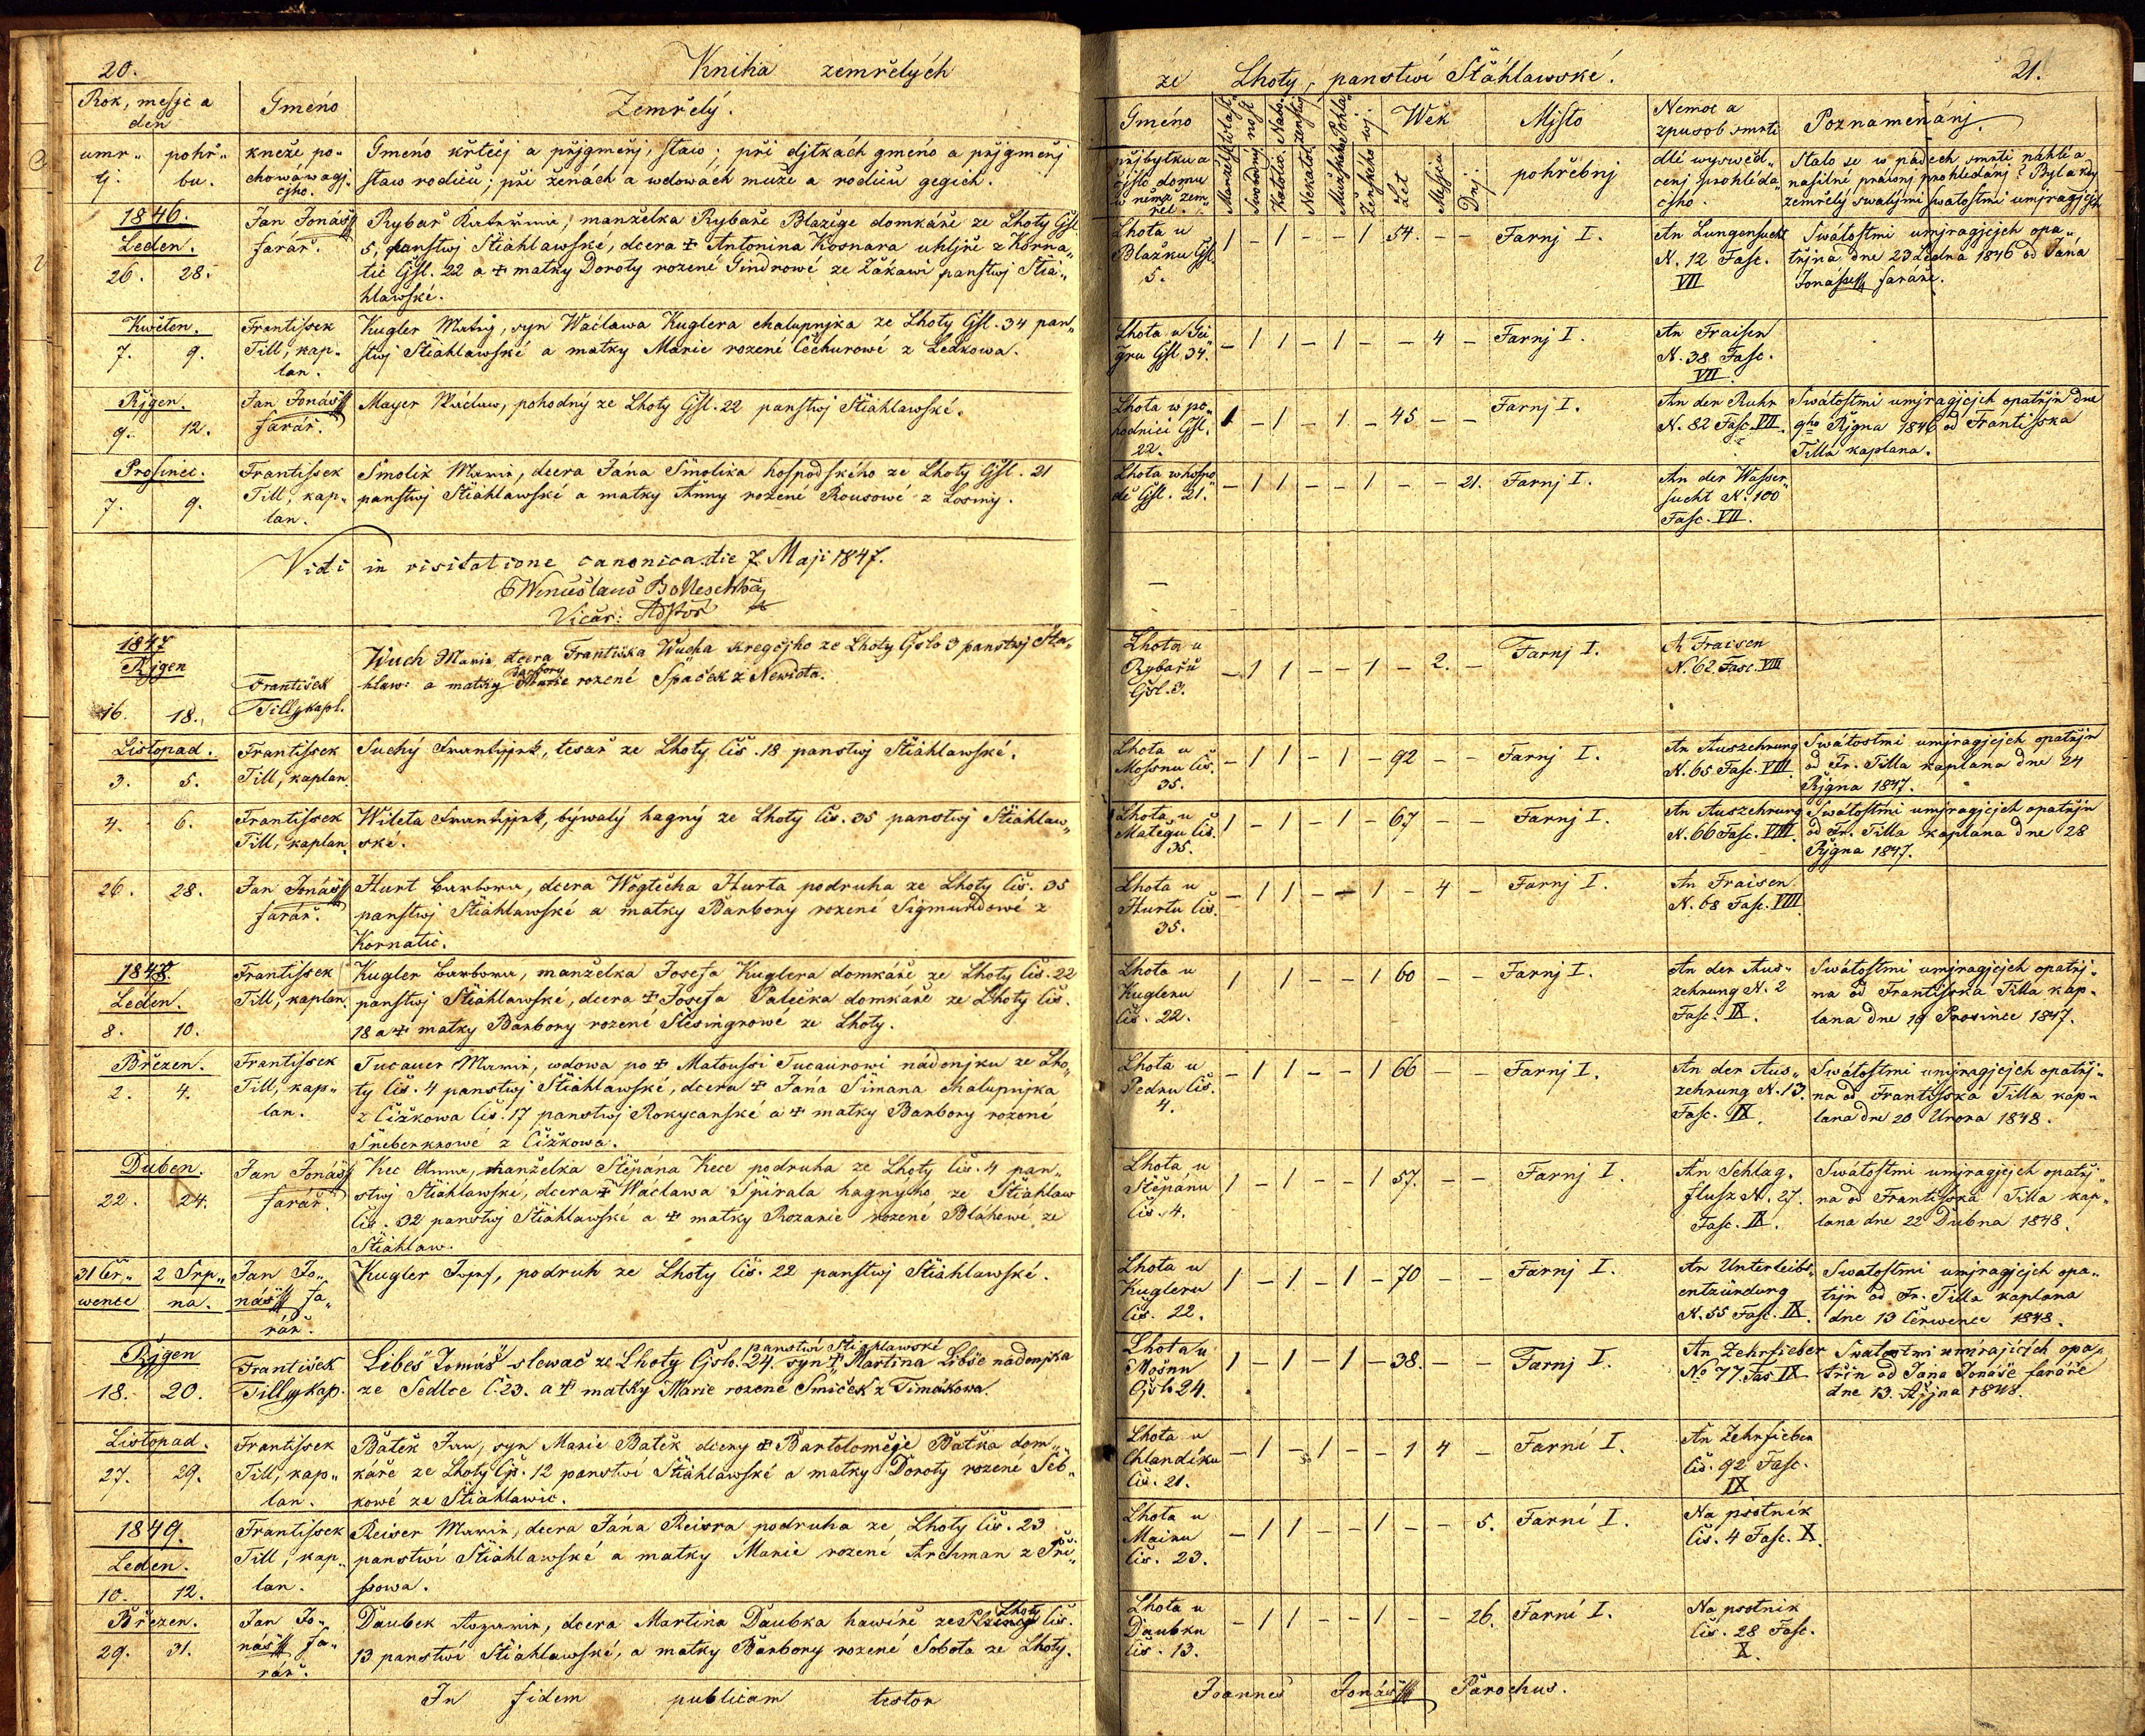 20.
Kniha zemřelých
ze Lhoty, panstwí Štáhlawské.
21.
Rok, mesjc a den
Gméno
Zemřelý.
umr„ lj. pohř„ bu.
kněze po„ chowáwagj„ cjho.
Gméno křtěcj a přjgmenj, staw; při djtkách gméno a přjgmenj
staw rodičů; při ženách a wdowách muže a rodičů gegich.
Gméno
přjbytku a čjslo domu w němž zem„ řel.
Wěk
Let
Měsjců
Dnj.
Mjsto
pohřebnj
Nemoc a způsob smrti
dlé wyswěd„ čenj prohléda„ cjho.
Poznamenánj.
Stalo se w pádech smrti náhlé a
násilné práwnj prohledánj? Byl a kdy
zemřelý swatými swátostmi umjragjcjch
1846.
Leden.
26. 28.
Jan Jonáš farář.
Rybař Kateřina, manželka Rybaře Blažige domkáře ze Lhoty Čjsl.
5, panstwj Štiáhlawské, dcera ☩ Antonina Kornara uhljře z Korna„
tic Čjsl. 22 a ☩ matky Doroty rozené Gindrowé ze Žákawi panstwj Štiá„
hlawské.
Lhota u Blažku Čjsl. 5.
1 – 1 – – 1 54. – –
Farnj I.
An Lungensucht N. 12 Fasc. VII
Swátostmi umjragjcjch opa„
třjna dne 23 Ledna 1846 od Jána
Jonáše faráře.
Kwěten.
7. 9.
Frantissek Till, kap„ lan.
Kugler Matěg, syn Wáclawa Kuglera chalupnjka ze Lhoty Čjsl. 34 pan„
stwj Štiáhlawské a matky Marie rozené Čechurowé z Ledkowa.
Lhota u Gei„ gru Čjsl. 34.
– 1 1 – 1 – – 4 –
Farnj I.
An Fraisen N. 38 Fasc. VII
Řjgen.
9. 12.
Jan Jonáš farář.
Mayer Wáclaw, pohodný ze Lhoty Čjsl. 22 panstwj Štiáhlawské.
Lhota w po„ hodnici Čjsl. 22.
1 – 1 – 1 – 45 – –
Farnj I.
An der Ruhr N. 82 Fasc. VII.
Swátostmi umjragjcjch opatřjn dne
9ho Řjgna 1846 od Frantisska
Tilla kaplana.
Prosinec.
7. 9.
Frantissek Till, kap„ lan.
Smolik Marie, dcera Jána Smolika hospodského ze Lhoty Čjsl. 21
panstwj Štiáhlawské a matky Anny rozené Rousowé z Losiny.
Lhota w hospo„ dě Čjsl. 21.
– 1 1 – – 1 – – 21.
Farnj I.
An der Wasser„ sucht N. 100 Fasc. VII.
Vidi in visitatione canonica die 7 Maji 1847.
Wenceslaus
Vicar:
1847
Řjgen
16. 18.
František Till kapl.
Wuch Marie dcera Františka Wucha kregčjho ze Lhoty Čjslo 3 panstwj Štia„
hlaw: a matky Barbory Marie rozené Špaček z Newida.
Lhota u Rybařů Čjsl. 3.
– 1 1 – – 1 – 2. –
Farnj I.
A Fraisen N. 62 Fasc. VIII
Listopad.
3. 5.
Frantissek Till, kaplan
Suchý Frantissek, tesař ze Lhoty Čís. 18 panstwj Štiáhlawské.
Lhota u Mossnu Čís. 35.
– 1 1 – 1 – 92 – –
Farnj I.
An Auszehrung N. 65 Fasc. VIII.
Swátostmi umjragjcjch opatřjn
od Fr. Tilla kaplana dne 24
Řjgna 1847.
4. 6.
Frantissek Till, kaplan
Wileta Frantissek, býwalý hagný ze Lhoty čís. 35 panstwj Štiáhlaw„
ské.
Lhota u Matěgu čís. 35.
1 – 1 – 1 – 67 – –
Farnj I.
An Auszehrung N. 66 Fasc. VIII.
Swátostmi umjragjcjch opatřjn
od Fr. Tilla kaplána dne 28
Řjgna 1847.
26. 28.
Jan Jonáš farář.
Hurt Barbora, dcera Wogtěcha Hurta podruha ze Lhoty čís. 35
panstwj Štiáhlawské a matky Barbory rozené Sigmundowé z
Kornatic.
Lhota u Hurtu čís. 35.
– 1 1 – – 1 – 4 –
Farnj I.
An Fraisen N. 68 Fasc. VIII
1848.
Leden.
8. 10.
Frantissek Till, kaplan.
Kugler Barbora, manželka Josefa Kuglera domkáře ze Lhoty čís. 22
panstwj Štiáhlawské, dcera ☩ Josefa Palečka domkáře ze Lhoty čís.
18 a ☩ matky Barbory rozené Slesingrowé ze Lhoty.
Lhota u Kugleru čís. 22.
1 1 – – 1 60 – –
Farnj I.
An der Aus„ zehrung N. 2 Fasc. IX.
Swátostmi umjragjcjch opatřj„
na od Frantisska Tilla kap„
lana dne 19 Prosince 1847.
Březen.
2. 4.
Frantissek Till, kap„ lan.
Tucauer Marie, wdowa po ☩ Matoussi Tucaurowi nádenjku ze Lho„
ty čís. 4 panstwj Štiáhlawské, dcera ☩ Jána Simana chalupnjka
z Čižkowa čís. 17 panstwj Rokycanské a ☩ matky Barbory rozené
Šneberkrowé z Čižkowa.
Lhota u Pedru čís. 4.
– 1 1 – – 1 66 – –
Farnj I.
An der Aus„ zehrung N. 13. Fasc. IX.
Swátostmi umjragjcjch opatřj„
na od Frantisska Tilla kap„
lana dne 20 Února 1848.
Duben.
22. 24.
Jan Jonáš farář.
Kec Anna, manželka Štěpána Kece podruha ze Lhoty čís. 4 pan„
stwj Štiáhlawské, dcera ☩ Wáclawa Špirala hagného ze Štiáhlaw
čís. 32 panstwj Štiáhlawské a ☩ matky Rozarie rozené Bláhowé ze
Štiáhlaw.
Lhota u Štěpánu čís. 4.
1 – 1 – – 1 57. – –
Farnj I.
An Schlag„ flusz N. 27. Fasc. IX.
Swátostmi umjragjcjch opatřj„
na od Frantisska Tilla kap„
lana dne 22 Dubna 1848.
31 Čer„ wence 2 Srp„ na.
Jan Jo„ náš fa„ rář.
Kugler Josef, podruh ze Lhoty čís. 22 panstwj Štiáhlawské.
Lhota u Kugleru čís. 22.
1 – 1 – 1 – 70 – –
Farnj I.
An Unterleibs„ entzündung N. 55 Fasc. IX.
Swatostmi umjragjcjch opa„
třjn od Fr. Tilla kaplana
dne 13 Čerwence 1848.
Řjgen
18. 20.
František Till kap.
Libeš Tomáš slewač ze Lhoty Čjslo. 24. panstwí Štiahlawské syn ☩ Martina Libše nádenjka
ze Sedlce č 23. a ☩ matky Marie rozené Smiček z Timákowa.
Lhota u Mošnu Čjslo 24.
1 – 1 – 1 – 38. – –
Farnj I.
An Zehrfieber No 77. Fas IX
Swatostmi umírajících opa„
třin od Jana Jonáše faráře
dne 13. Řijna 1848.
Listopad.
27. 29.
Frantissek Till, kap„ lan.
Batěk Jan, syn Marie Batěk dcery ☩ Bartoloměje Batka dom„
káře ze Lhoty čjs. 12 panstwí Štiáhlawské a matky Doroty rozené Šeb„
kowé ze Štiáhlawic.
Lhota u Chlandíku čís. 21.
– 1 – 1 – – 1 4 –
Farní I.
An Zehrfieber čís. 92 Fasc. IX
1849.
Leden.
10. 12.
Frantissek Till, kap„ lan.
Reiser Marie, dcera Jána Reisra podruha ze Lhoty čís. 23
panstwí Štiáhlawské a matky Marie rozené Archman z Při„
ssowa.
Lhota u Mainu čís. 23.
– 1 1 – – 1 – – 5.
Farní I.
Na psotník čís. 4 Fasc. X.
Březen.
29. 31.
Jan Jo„ náš fa„ rář.
Daubek Rozarie, dcera Martina Daubka hawíře ze Lhoty čís.
13 panstwí Štiáhlawské, a matky Barbory rozené Sobota ze Lhoty.
Lhota u Daubku čís. 13.
– 1 1 – – 1 – – 26.
Farní I.
Na psotník čís. 28 Fasc. X.
In fidem publicam testor
Joannes Jonáš Parochus.